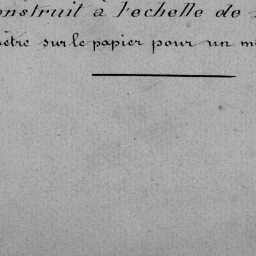 onstruit à l'echelle de
ètre sur le papier pour un m